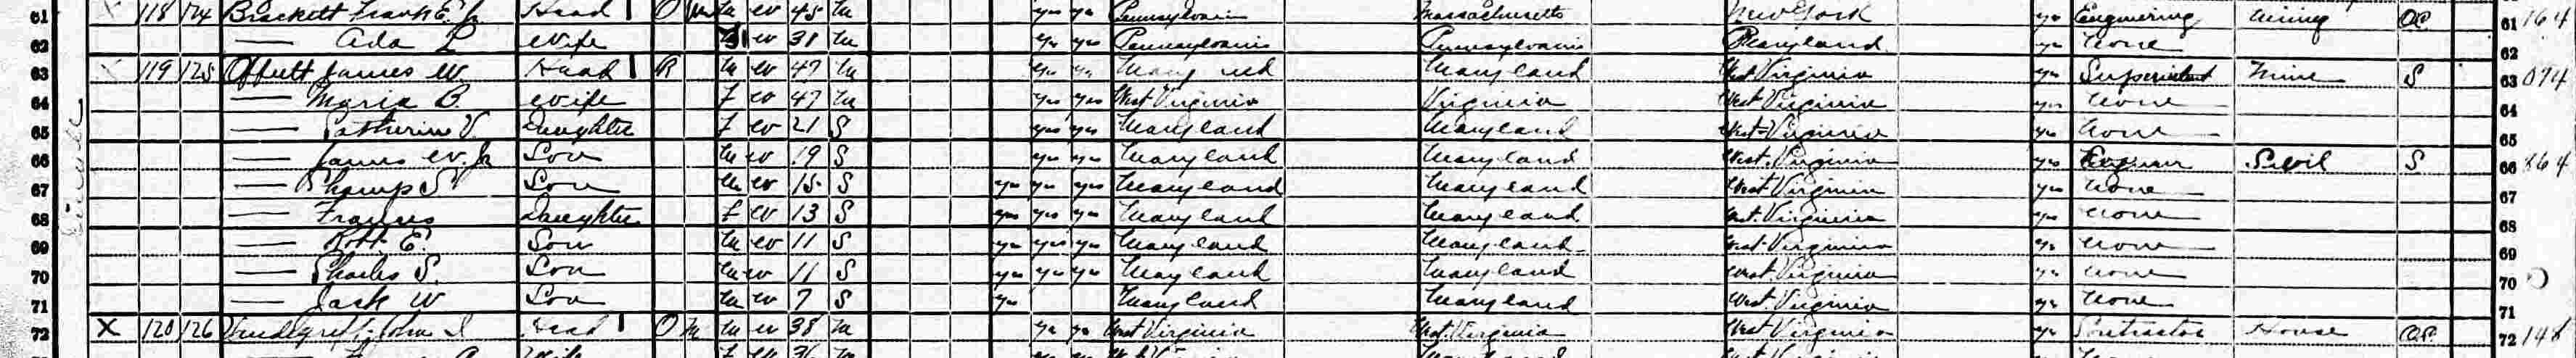 61 118 124 Brackett Frank E. Jr Head 1 O M M W 45 M yes yes Pennsylvania Massachusetts New York yes Engineering Mining OA 61 164
62 — Ada L Wife W 38 M yes yes Pennsylvania Pennsylvania Maryland yes None 62
63 X 119 125 Offutt James W Head 1 R M W 47 M yes yes Maryland Maryland West Virginia yes Superintendent Mine S 63 074
64 — Maria B. Wife F W 47 M yes yes West Virginia Virginia West Virginia yes None 64
65 — Catherine V. Daughter F W 21 S yes yes Maryland Maryland West Virginia yes None 65
66 — James W. Jr Son M W 19 S yes yes Maryland Maryland West Virginia yes Civil S 66 864
67 — S Son M W 15 S yes yes yes Maryland Maryland West Virginia yes None 67
68 — Frances Daughter F W 13 S yes yes yes Maryland Maryland West Virginia yes None 68
69 — Robt E. Son M W 11 S yes yes yes Maryland Maryland West Virginia yes None 69
70 — Charles S. Son M W 11 S yes yes yes Maryland Maryland West Virginia yes None 70
71 — Jack W Son M W 7 S yes Maryland Maryland West Virginia yes None 71
72 X 120 126 John Head 1 O M M W 38 M yes yes West Virginia West Virginia West Virginia yes Contractor House 72